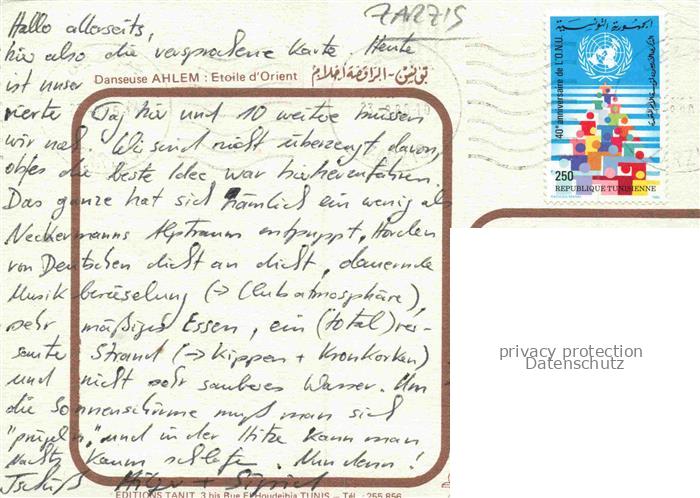 ZARZIS
Hallo allerseits,
hier also die versprochene Karte. Heute
ist unser
Danseuse AHLEM : Etoile d'Orient تونس - الراقصة أحلام
vierte Tag hier und 10 weitere müssen
wir noch. Wir sind nicht überzeugt davon,
ob es die beste Idee war hierherzufahren.
Das ganze hat sich nämlich ein wenig als
Neckermanns Alptraum entpuppt, Horden
von Deutschen dicht an dicht, dauernde
Musikberieselung (→ Clubatmosphäre),
sehr mäßiges Essen, ein (total) ver-
sauter Strand (→ Kippen + Kronkorken)
und nicht sehr sauberes Wasser. Um
die Sonnenschirme muß man sich
"prügeln", und in der Hitze kann man
nachts kaum schlafen. Nun denn!
Tschüß Holger + Sigrid
EDITIONS TANIT, 3 bis Rue El Houdeibia TUNIS — Tél. : 255.856
الجمهورية التونسية
40e anniversaire de L'O.N.U.
250
REPUBLIQUE TUNISIENNE
privacy protection
Datenschutz